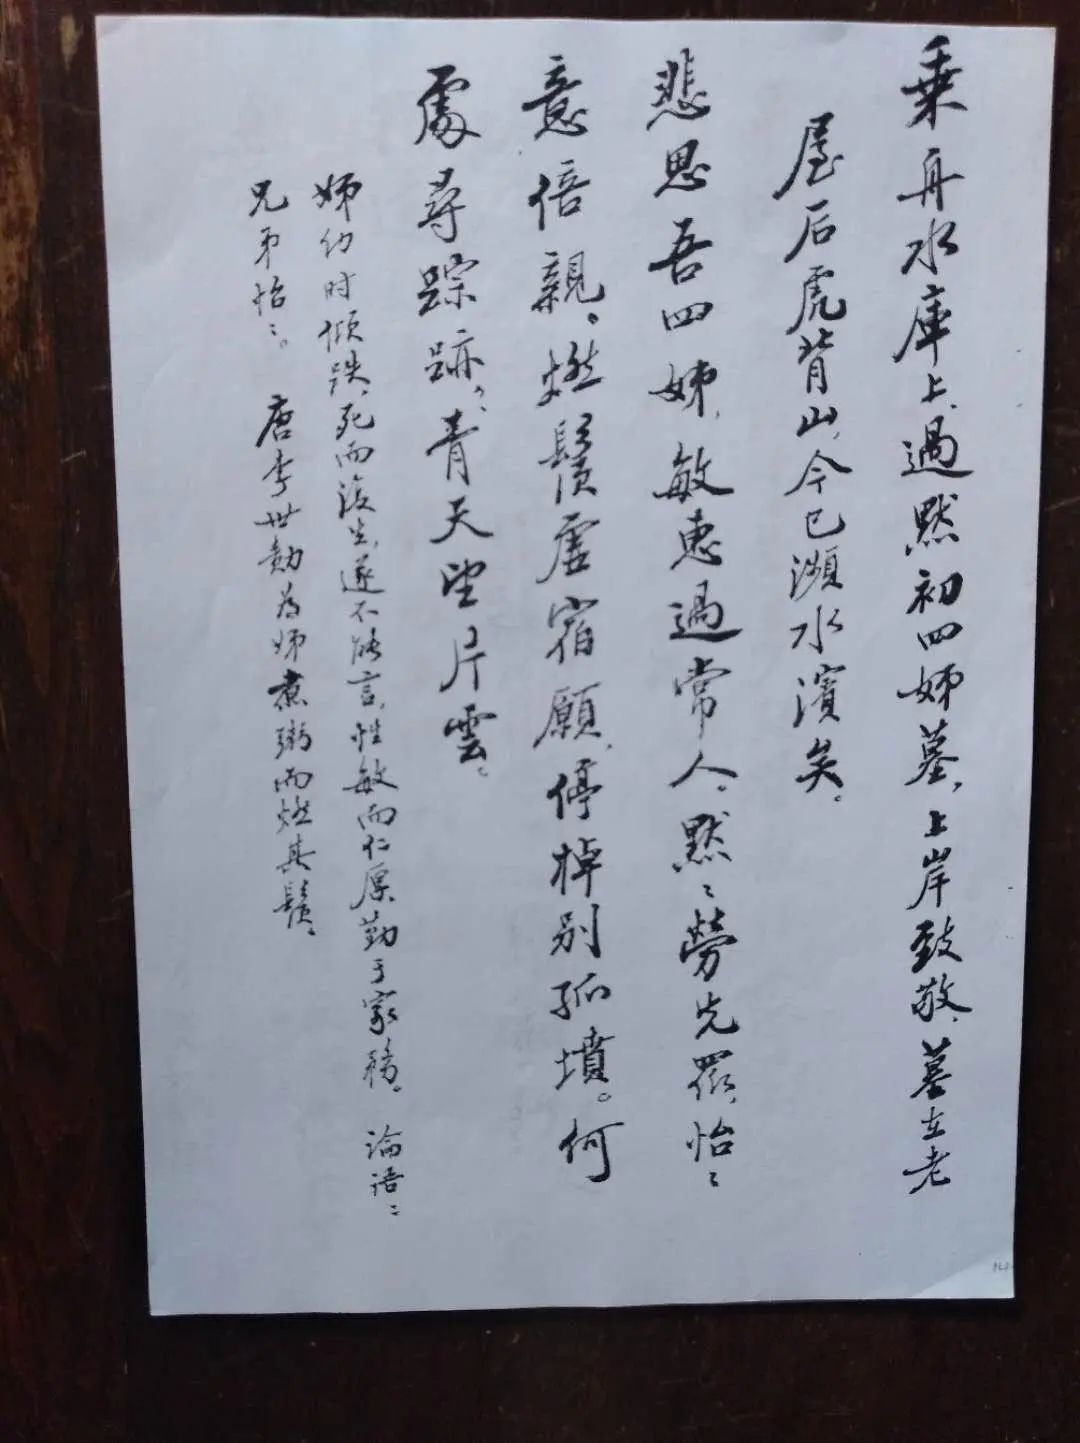 乗舟水庫上，過默初四姊墓，上岸致敬，墓在老
屋后虎背山，今已瀕水濱矣。
悲思吾四姊，敏惠過常人。默〻勞先眾，怡〻
意倍親。燃鬚虛宿願，停棹別孤墳。何
處尋踪跡？青天望片雲。
姊幼时傾跌，死而復生，遂不能言，性敏而仁厚，勤于家務。論语：
兄弟怡〻。唐李世勣為姊煮粥而燃其鬚。